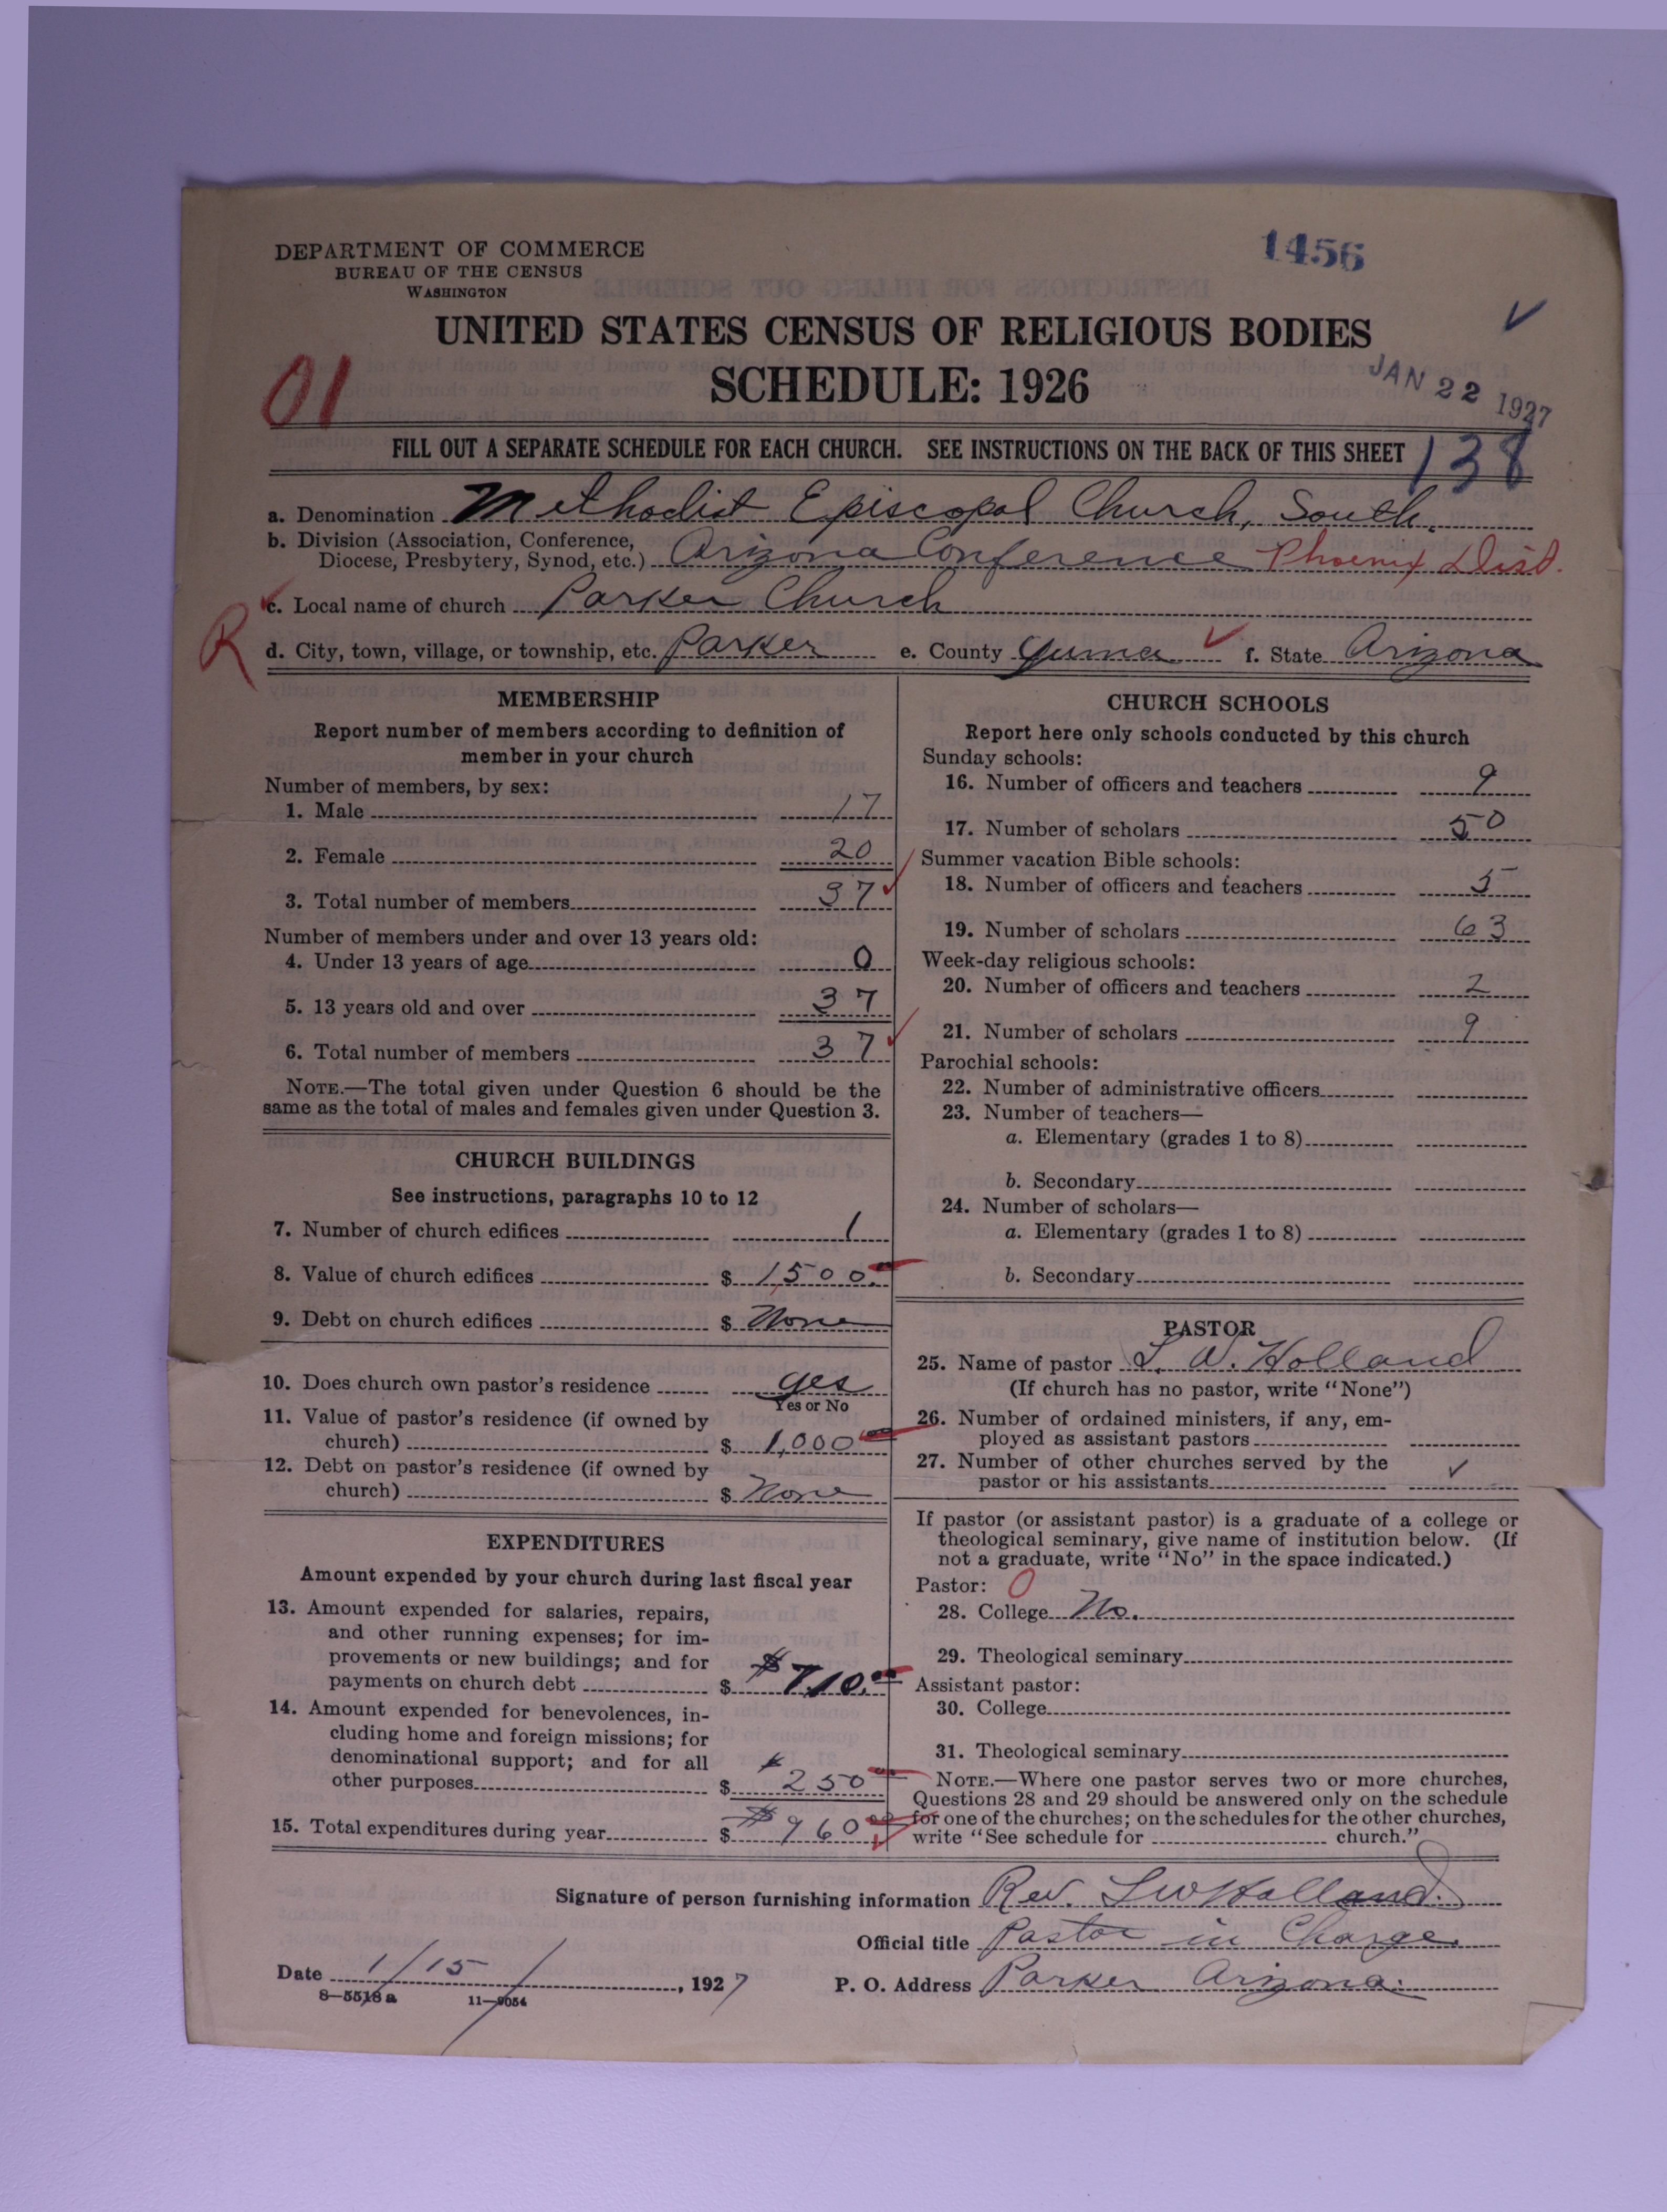 DEPARTMENT OF COMMERCE
BUREAU OF THE CENSUS
WASHINGTON
1456
UNITED STATES CENSUS OF RELIGIOUS BODIES
SCHEDULE: 1926
01
JAN 22 1927
FILL OUT A SEPARATE SCHEDULE FOR EACH CHURCH. SEE INSTRUCTIONS ON THE BACK OF THIS SHEET
138
a. Denomination Methodist Episcopal Church, South.
b. Division (Association, Conference,
Diocese, Presbytery, Synod, etc.) Arizona Conference Phoenix Dist.
c. Local name of church Parker Church
R
d. City, town, village, or township, etc. Parker e. County Yuma f. State Arizona
MEMBERSHIP
Report number of members according to definition of
member in your church
Number of members, by sex:
1. Male 17
2. Female 20
3. Total number of members 37
Number of members under and over 13 years old:
4. Under 13 years of age 0
5. 13 years old and over 37
6. Total number of members 37
NOTE.—The total given under Question 6 should be the
same as the total of males and females given under Question 3.
CHURCH BUILDINGS
See instructions, paragraphs 10 to 12
7. Number of church edifices 1
8. Value of church edifices $ 1500.
9. Debt on church edifices $ None
10. Does church own pastor's residence yes
Yes or No
11. Value of pastor's residence (if owned by
church) $ 1,000
12. Debt on pastor's residence (if owned by
church) $ None
EXPENDITURES
Amount expended by your church during last fiscal year
13. Amount expended for salaries, repairs,
and other running expenses; for im-
provements or new buildings; and for
payments on church debt $ $710.
14. Amount expended for benevolences, in-
cluding home and foreign missions; for
denominational support; and for all
other purposes $ 250
15. Total expenditures during year $ $960
CHURCH SCHOOLS
Report here only schools conducted by this church
Sunday schools:
16. Number of officers and teachers 9
17. Number of scholars 50
Summer vacation Bible schools:
18. Number of officers and teachers 5
19. Number of scholars 63
Week-day religious schools:
20. Number of officers and teachers 2
21. Number of scholars 9
Parochial schools:
22. Number of administrative officers
23. Number of teachers—
a. Elementary (grades 1 to 8)
b. Secondary
24. Number of scholars—
a. Elementary (grades 1 to 8)
b. Secondary
PASTOR
25. Name of pastor L. W. Holland
(If church has no pastor, write "None")
26. Number of ordained ministers, if any, em-
ployed as assistant pastors
27. Number of other churches served by the
pastor or his assistants
If pastor (or assistant pastor) is a graduate of a college or
theological seminary, give name of institution below. (If
not a graduate, write "No" in the space indicated.)
Pastor: 0
28. College No.
29. Theological seminary
Assistant pastor:
30. College
31. Theological seminary
NOTE.—Where one pastor serves two or more churches,
Questions 28 and 29 should be answered only on the schedule
for one of the churches; on the schedules for the other churches,
write "See schedule for church."
Signature of person furnishing information Rev. L W Holland.
Official title Pastor in Charge.
Date 1/15/, 1927 P. O. Address Parker Arizona.
8—5518 a 11—9054